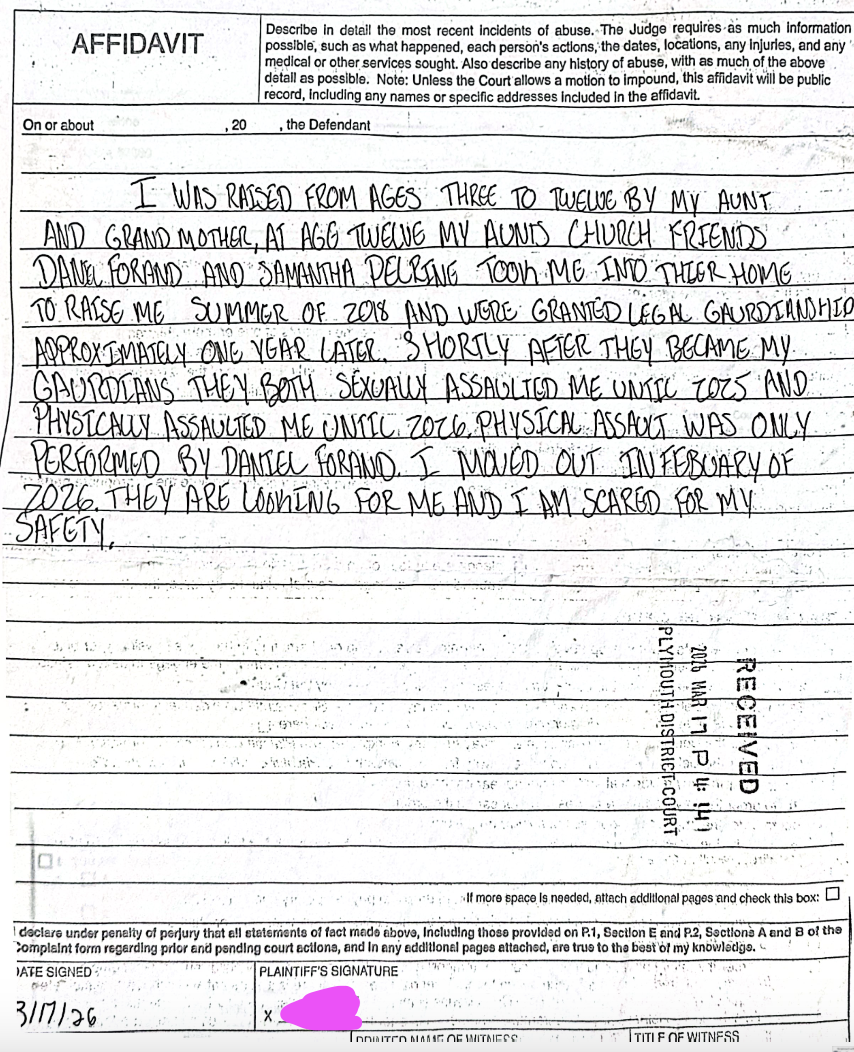 AFFIDAVIT
Describe in detail the most recent incidents of abuse. The Judge requires as much information
possible, such as what happened, each person's actions, the dates, locations, any injuries, and any
medical or other services sought. Also describe any history of abuse, with as much of the above
detail as possible. Note: Unless the Court allows a motion to impound, this affidavit will be public
record, including any names or specific addresses included in the affidavit.
On or about , 20 , the Defendant
I WAS RAISED FROM AGES THREE TO TWELVE BY MY AUNT
AND GRANDMOTHER, AT AGE TWELVE MY AUNTS CHURCH FRIENDS
DANIEL FORAND AND SAMANTHA PELRINE TOOK ME INTO THIER HOME
TO RAISE ME SUMMER OF 2018 AND WERE GRANTED LEGAL GAURDIANSHIP
APPROXIMATELY ONE YEAR LATER. SHORTLY AFTER THEY BECAME MY
GAURDIANS THEY BOTH SEXUALLY ASSAULTED ME UNTIL 2025 AND
PHYSICALLY ASSAULTED ME UNTIL 2026. PHYSICAL ASSAULT WAS ONLY
PERFORMED BY DANIEL FORAND. I MOVED OUT IN FEBUARY OF
2026. THEY ARE LOOKING FOR ME AND I AM SCARED FOR MY
SAFETY.
RECEIVED
2026 MAR 17 P 4: 14
PLYMOUTH DISTRICT COURT
If more space is needed, attach additional pages and check this box:
I declare under penalty of perjury that all statements of fact made above, including those provided on P.1, Section E and P.2, Sections A and B of the
Complaint form regarding prior and pending court actions, and in any additional pages attached, are true to the best of my knowledge.
DATE SIGNED
PLAINTIFF'S SIGNATURE
3/17/26
X
PRINTED NAME OF WITNESS
TITLE OF WITNESS